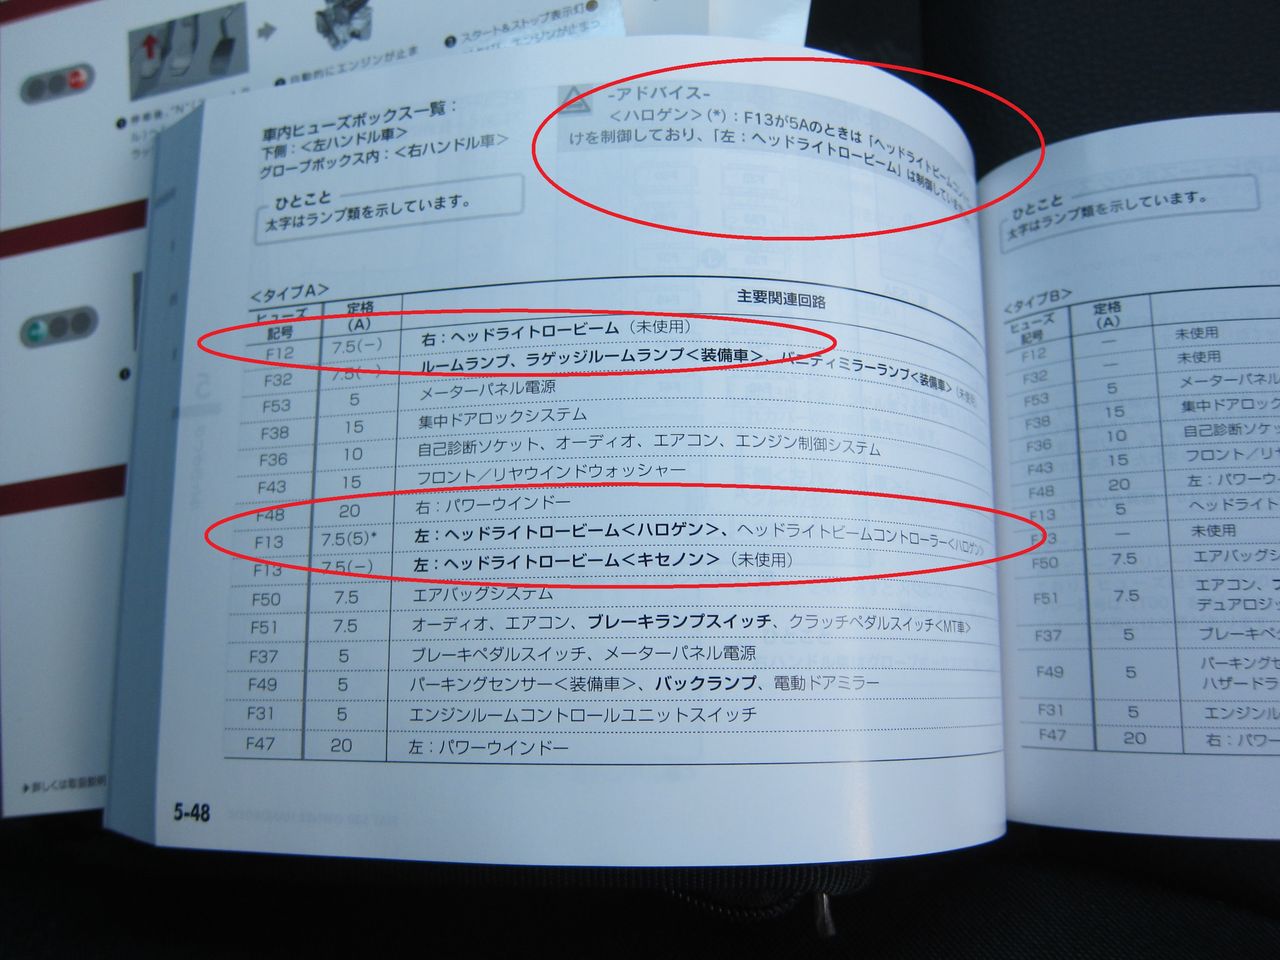 スタート&ストップ表示灯
自動的にエンジンが止ま
車内ヒューズボックス一覧：
下側：<左ハンドル車>
グローブボックス内：<右ハンドル車>
ひとこと
太字はランプ類を示しています。
-アドバイス-
<ハロゲン>(*)：F13が5Aのときは「ヘッドライトビームコン
けを制御しており、「左：ヘッドライトロービーム」は制御してい
<タイプA>
ヒューズ記号 定格(A) 主要関連回路
F12 7.5(−) 右：ヘッドライトロービーム（未使用）
F32 7.5(−) ルームランプ、ラゲッジルームランプ<装備車>、バニティミラーランプ<装備車>（未使用）
F53 5 メーターパネル電源
F38 15 集中ドアロックシステム
F36 10 自己診断ソケット、オーディオ、エアコン、エンジン制御システム
F43 15 フロント／リヤウインドウォッシャー
F48 20 右：パワーウインドー
F13 7.5(5)* 左：ヘッドライトロービーム<ハロゲン>、ヘッドライトビームコントローラー<ハロゲン>
F13 7.5(−) 左：ヘッドライトロービーム<キセノン>（未使用）
F50 7.5 エアバッグシステム
F51 7.5 オーディオ、エアコン、ブレーキランプスイッチ、クラッチペダルスイッチ<MT車>
F37 5 ブレーキペダルスイッチ、メーターパネル電源
F49 5 パーキングセンサー<装備車>、バックランプ、電動ドアミラー
F31 5 エンジンルームコントロールユニットスイッチ
F47 20 左：パワーウインドー
5-48
ひとこと
太字はランプ類を示しています。
<タイプB>
ヒューズ記号 定格(A)
F12 — 未使用
F32 — 未使用
F53 5 メーターパネル
F38 15 集中ドアロック
F36 10 自己診断ソケッ
F43 15 フロント／リヤ
F48 20 左：パワーウ
F13 5 ヘッドライト
— 未使用
F50 7.5 エアバッグシ
F51 7.5 エアコン、
デュアロジッ
F37 5 ブレーキペ
F49 5 パーキング
ハザードラ
F31 5 エンジンル
F47 20 右：パワー